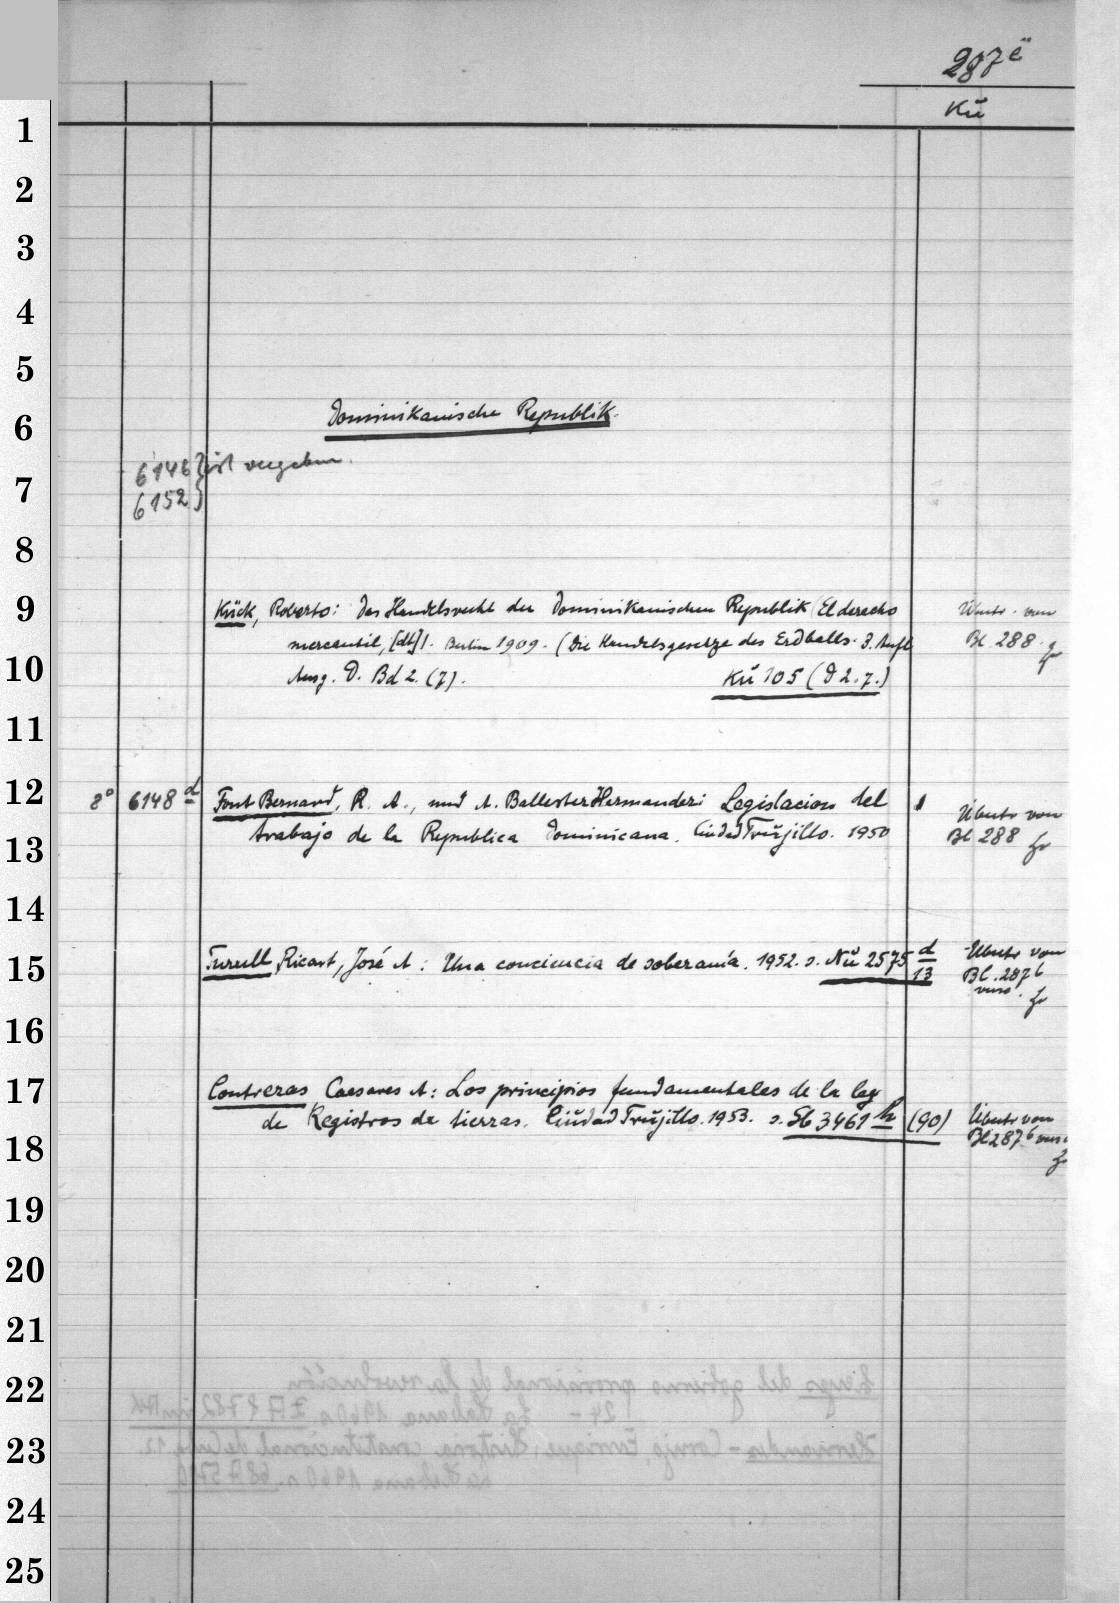 287 e
Kü
1
2
3
4
5
6
Dominikanische Republik.
6146 } ist vergeben.
7
6152 }
8
9
Kück, Roberto: Das Handelsrecht der Dominikanischen Republik (El derecho
Übertr. von
mercantil, [dt.]). Berlin 1909. (Die Handelsgesetze des Erdballs. 3. Aufl
Bl. 288.
10
Ausg. D. Bd 2. (7).
Kü 105 (D 2. 7.)
11
12
8° 6148 d Font Bernard, R. A., und A. Ballester Hernandez: Legislacion del
1
Übertr von
13
trabajo de la Republica Dominicana. Ciudad Trujillo. 1950
Bl 288
14
15
Turull, Ricart, José A: Una conciencia de soberanía. 1952. s. Nü 2575 d/13
Übertr von
Bl. 287 b
verso.
16
17
Contreras Caesares A: Los principios fundamentales de la ley
de Registros de tierras. Ciudad Trujillo. 1953. s. Sb 3461 h (90)
Übertr von
18
Bl 287 b verso
19
20
21
22
23
24
25